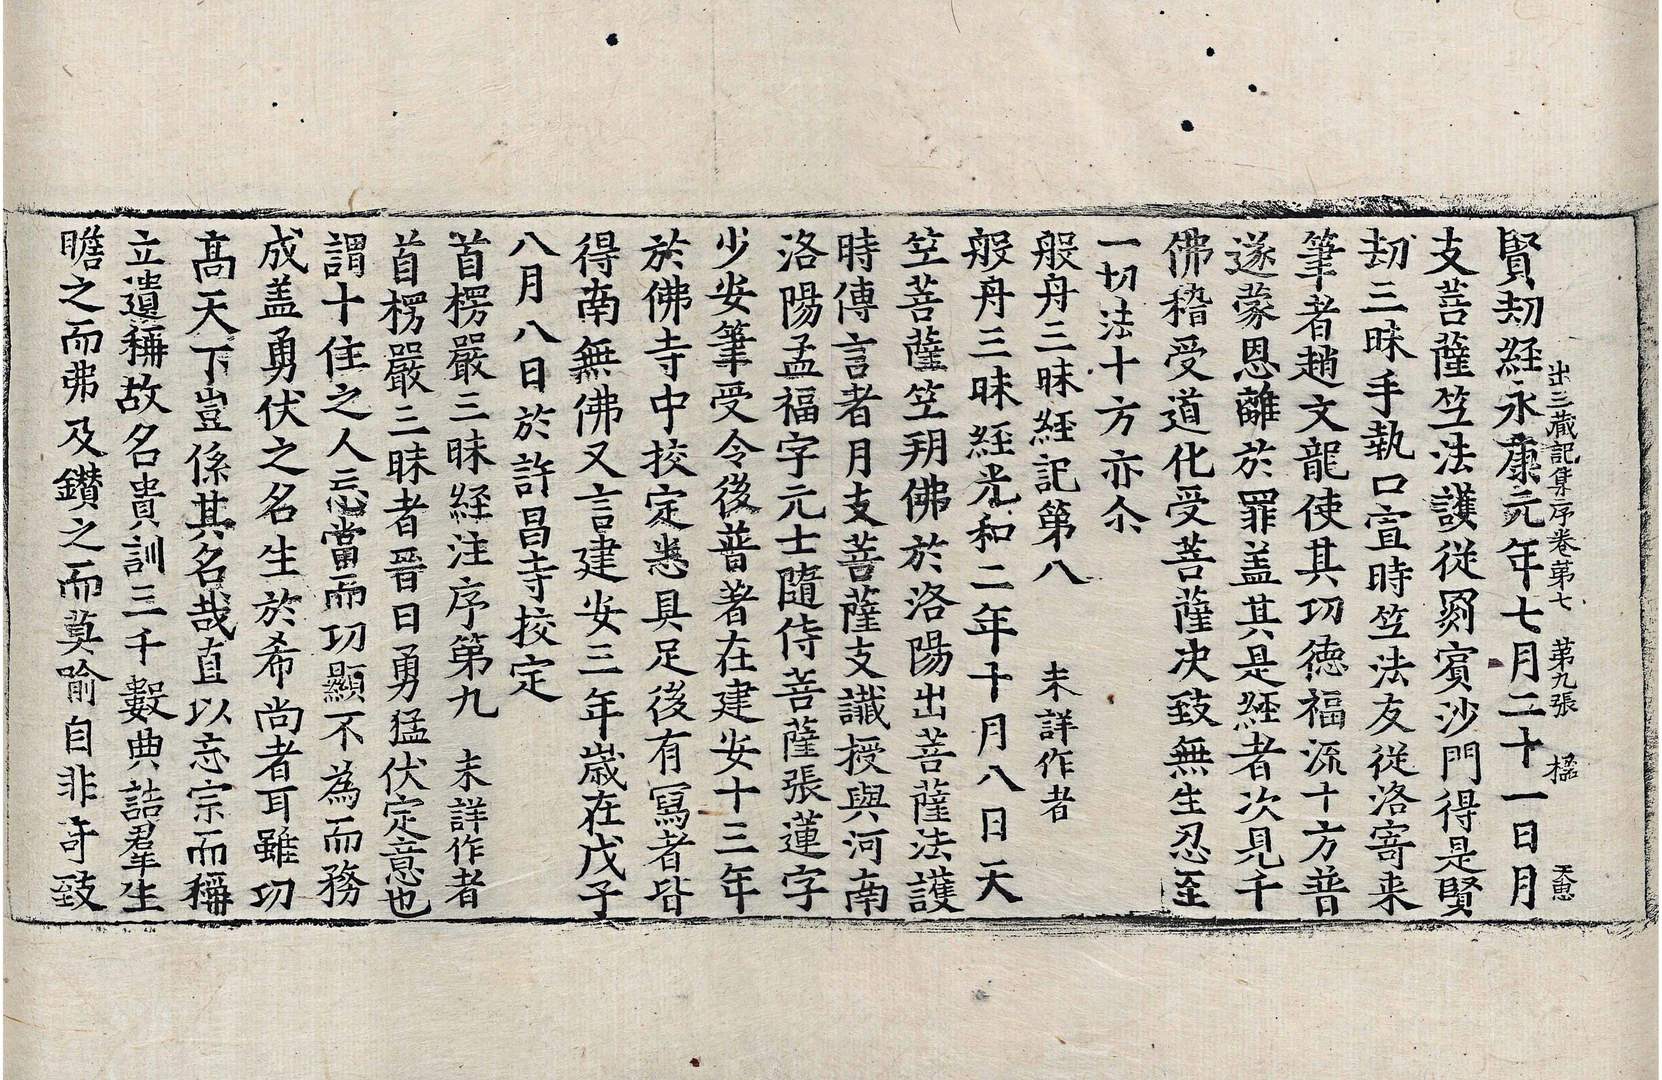 出三藏記集序卷第七 第九張 楹 天恵
賢刼經永康元年七月二十一日月
支菩薩笁法護從罽賓沙門得是賢
刼三昧手執口宣時笁法友從洛寄来
筆者趙文龍使其功徳福流十方普
遂蒙恩離於罪盖其是經者次見千
佛稽受道化受菩薩决致無生忍至
一切法十方亦尒
般舟三昧經記第八 未詳作者
般舟三昧經光和二年十月八日天
笁菩薩笁朔佛於洛陽出菩薩法護
時傳言者月支菩薩支讖授與河南
洛陽孟福字元士隨侍菩薩張蓮字
少安筆受令後普著在建安十三年
於佛寺中挍定悉具足後有寫者皆
得南無佛又言建安三年歳在戊子
八月八日於許昌寺挍定
首楞嚴三昧経注序第九 未詳作者
首楞嚴三昧者晉曰勇猛伏定意也
謂十住之人忘當而功顯不為而務
成盖勇伏之名生於希尚者耳雖功
髙天下豈係其名哉直以忘宗而稱
立遺稱故名貴訓三千數典誥羣生
瞻之而弗及鑽之而莫喻自非奇致